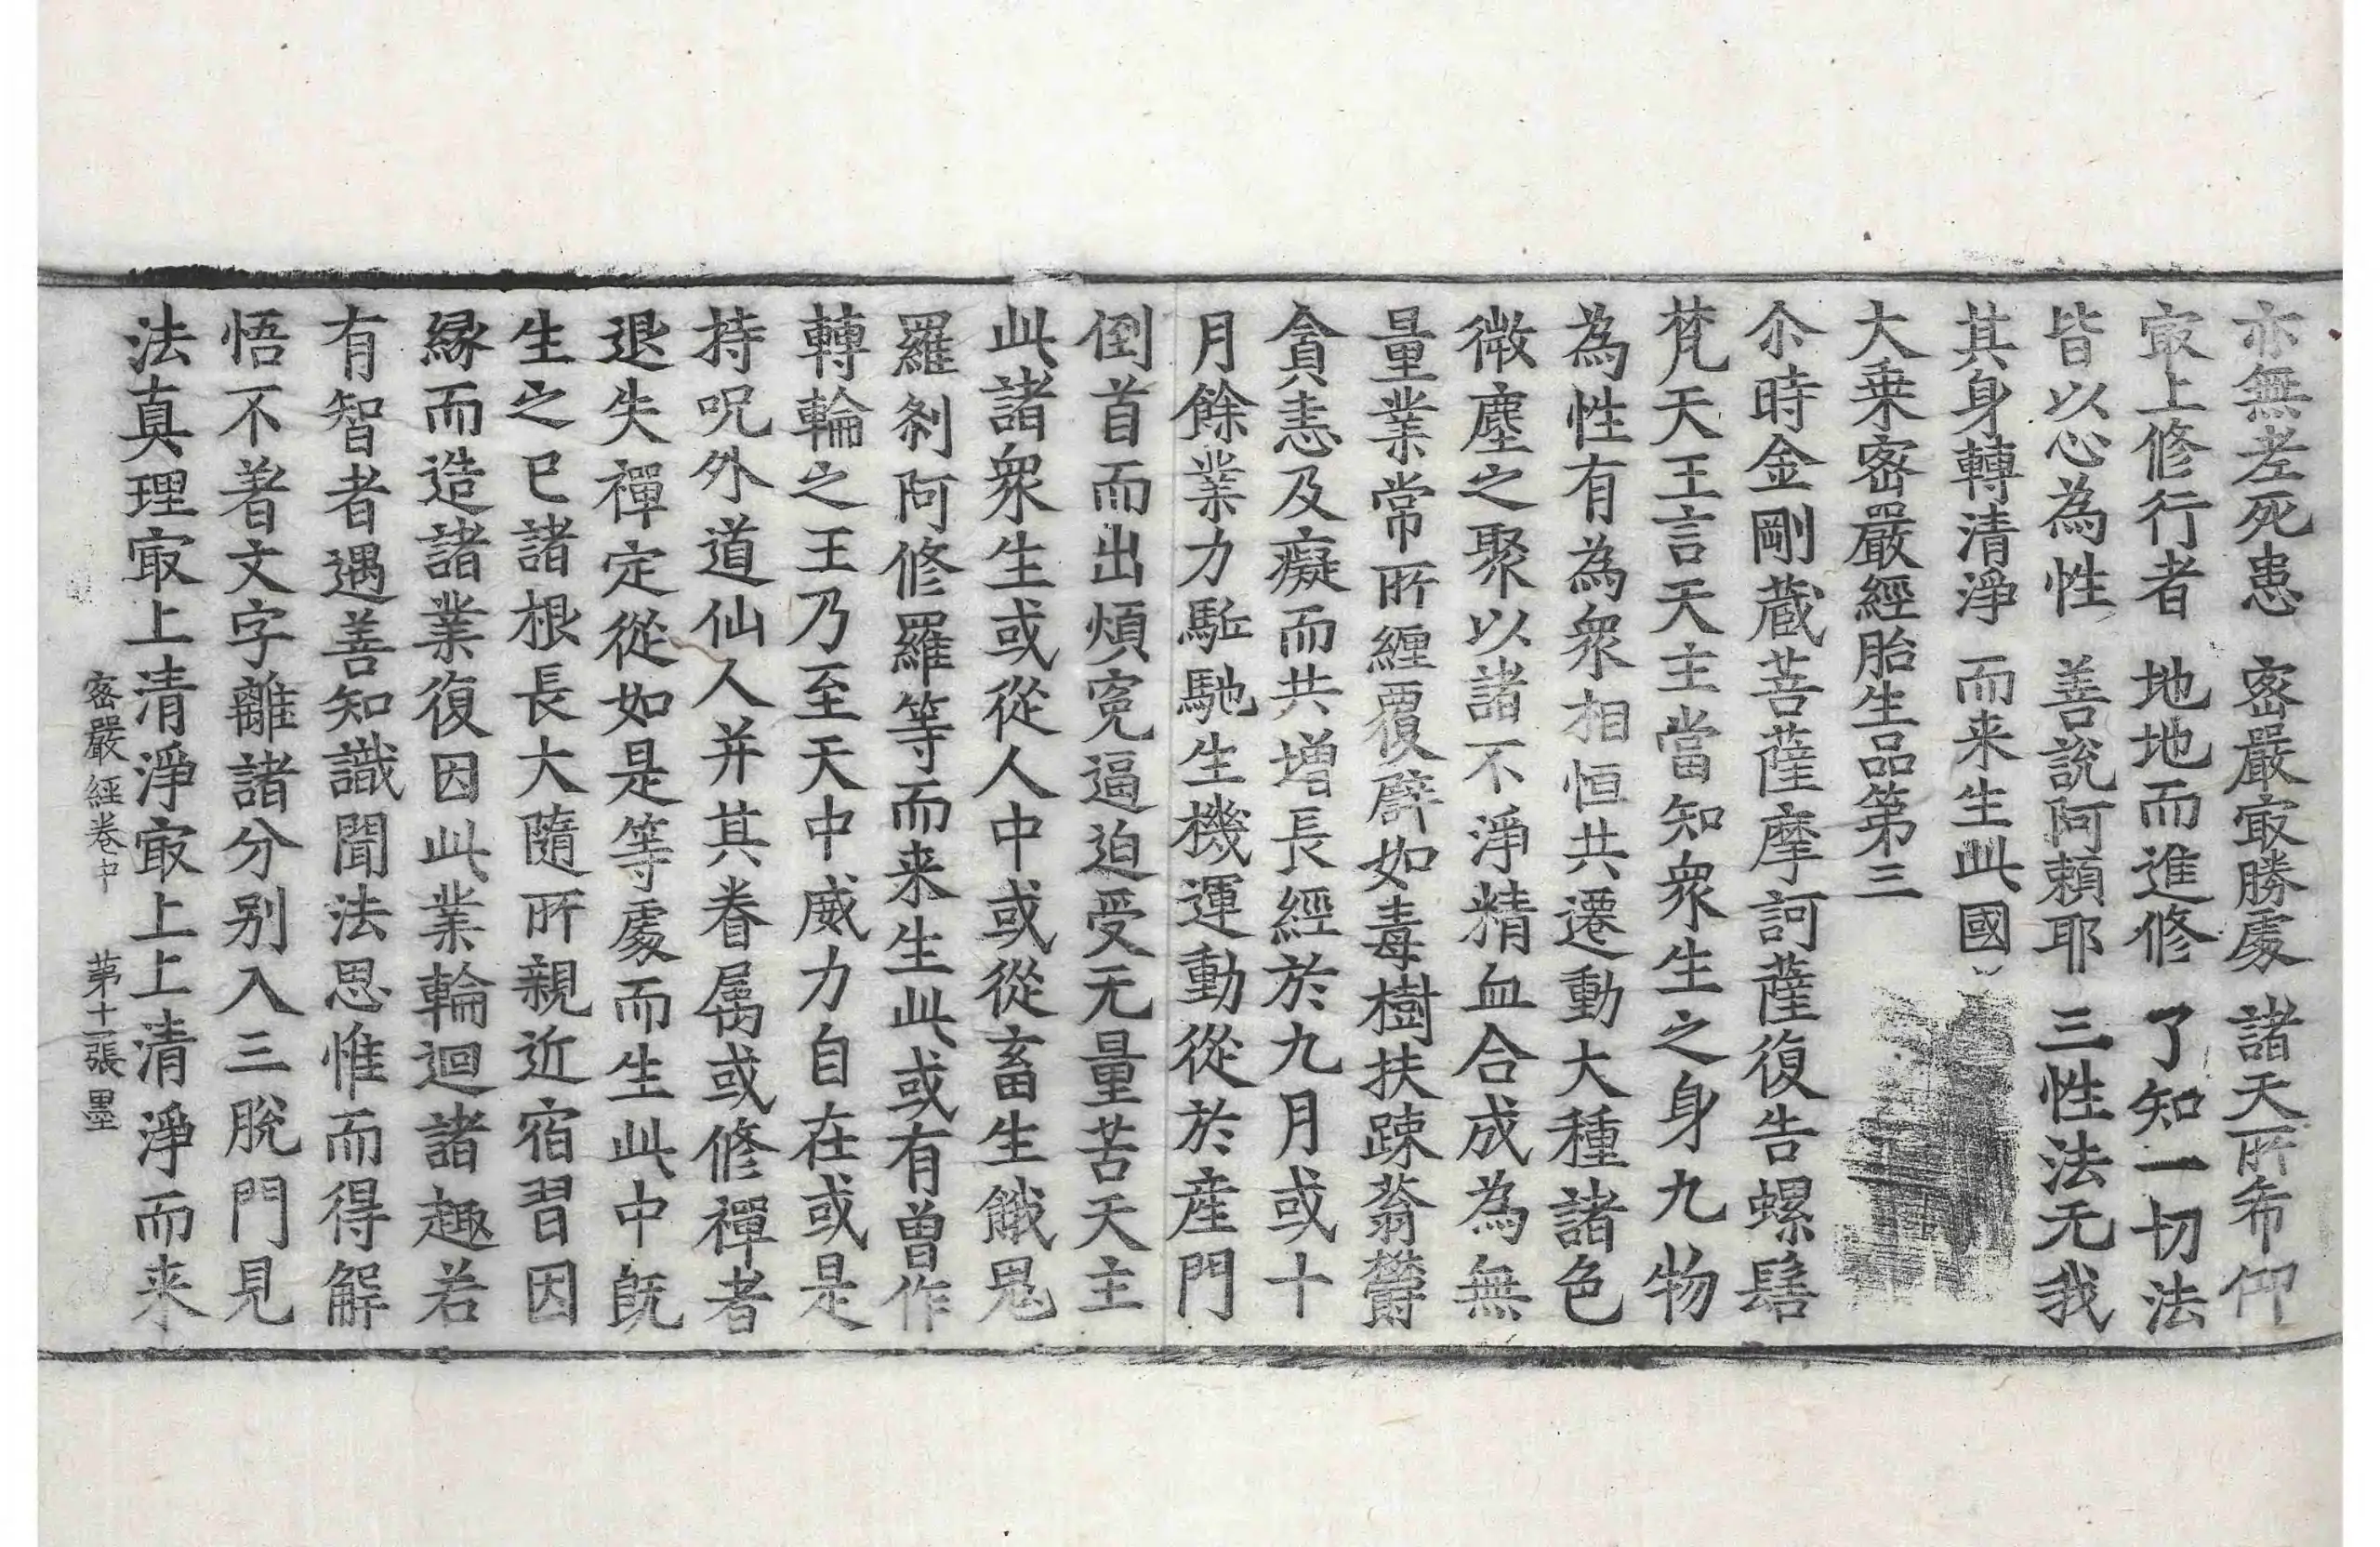 亦無老死患　密嚴㝡勝處　諸天所希仰
㝡上修行者　地地而進修　了知一切法
皆以心為性　善說阿賴耶　三性法无我
其身轉清淨　而来生此國
大乗密嚴經胎生品第三
尒時金剛蔵菩薩摩訶薩復告螺髻
梵天王言天主當知衆生之身九物
為性有為衆相恒共遷動大種諸色
微塵之聚以諸不淨精血合成為無
量業常所纒覆譬如毒樹扶踈蓊欝
貪恚及癡而共增長經於九月或十
月餘業力駈馳生機運動從於産門
倒首而出煩寃逼迫受无量苦天主
此諸衆生或從人中或從畜生餓鬼
羅刹阿修羅等而来生此或有曽作
轉輪之王乃至天中威力自在或是
持呪外道仙人并其眷属或修禪者
退失禪定從如是等處而生此中旣
生之已諸根長大隨所親近宿習因
緣而造諸業復因此業輪迴諸趣若
有智者遇善知識聞法思惟而得解
悟不著文字離諸分別入三脫門見
法真理㝡上清淨㝡上上清淨而来
密嚴經卷中　苐十一張　墨